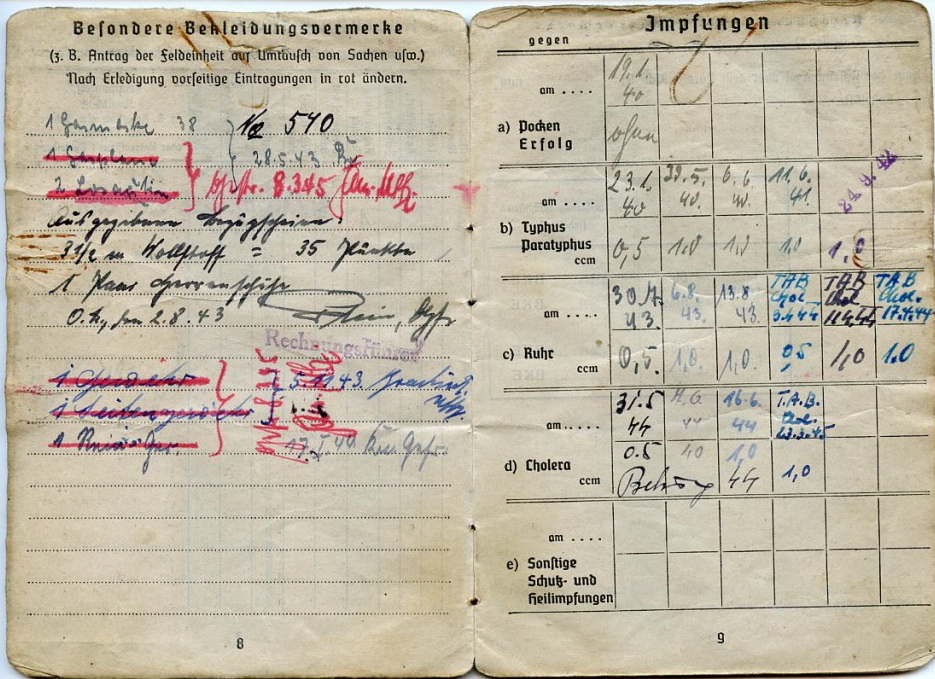 Besondere Bekleidungsvermerke
(z. B. Antrag der Feldeinheit auf Umtausch von Sachen usw.)
Nach Erledigung vorseitige Eintragungen in rot ändern.
1 Gasmaske 38 No 540
28.5.43
8.3.45
Ausgegebene Bezugscheine:
3 1/2 m Wollstoff = 35 Punkte
1 Paar Herrenschuhe
O.U., den 2.8.43
Rechnungsführer
1 Gewehr 5.11.43.
1 Seitengewehr
1 Rein. Ger.
8
Impfungen
gegen
am .... 19.1. 40
a) Pocken
Erfolg ohne
am .... 23.1. 40 6.6. 40. 11.6. 41 24.4.42
b) Typhus
Paratyphus
ccm 0,5 1,0 1,0 1,0 1,0
am .... 30.7. 43. 6.8. 43. 13.8. 43. TAB Chol. 3.4.44 TAB Chol. 11.4.44 TAB Chol. 17.4.44
c) Ruhr
ccm 0,5 1,0 1,0. 0,5 1,0 1,0
am .... 31.5 44 44 16.6. 44 T.A.B. Chol. 23.3.45
d) Cholera
ccm 0.5 1,0 1,0 1,0
Behring 44
am ....
e) Sonstige
Schutz- und
Heilimpfungen
9